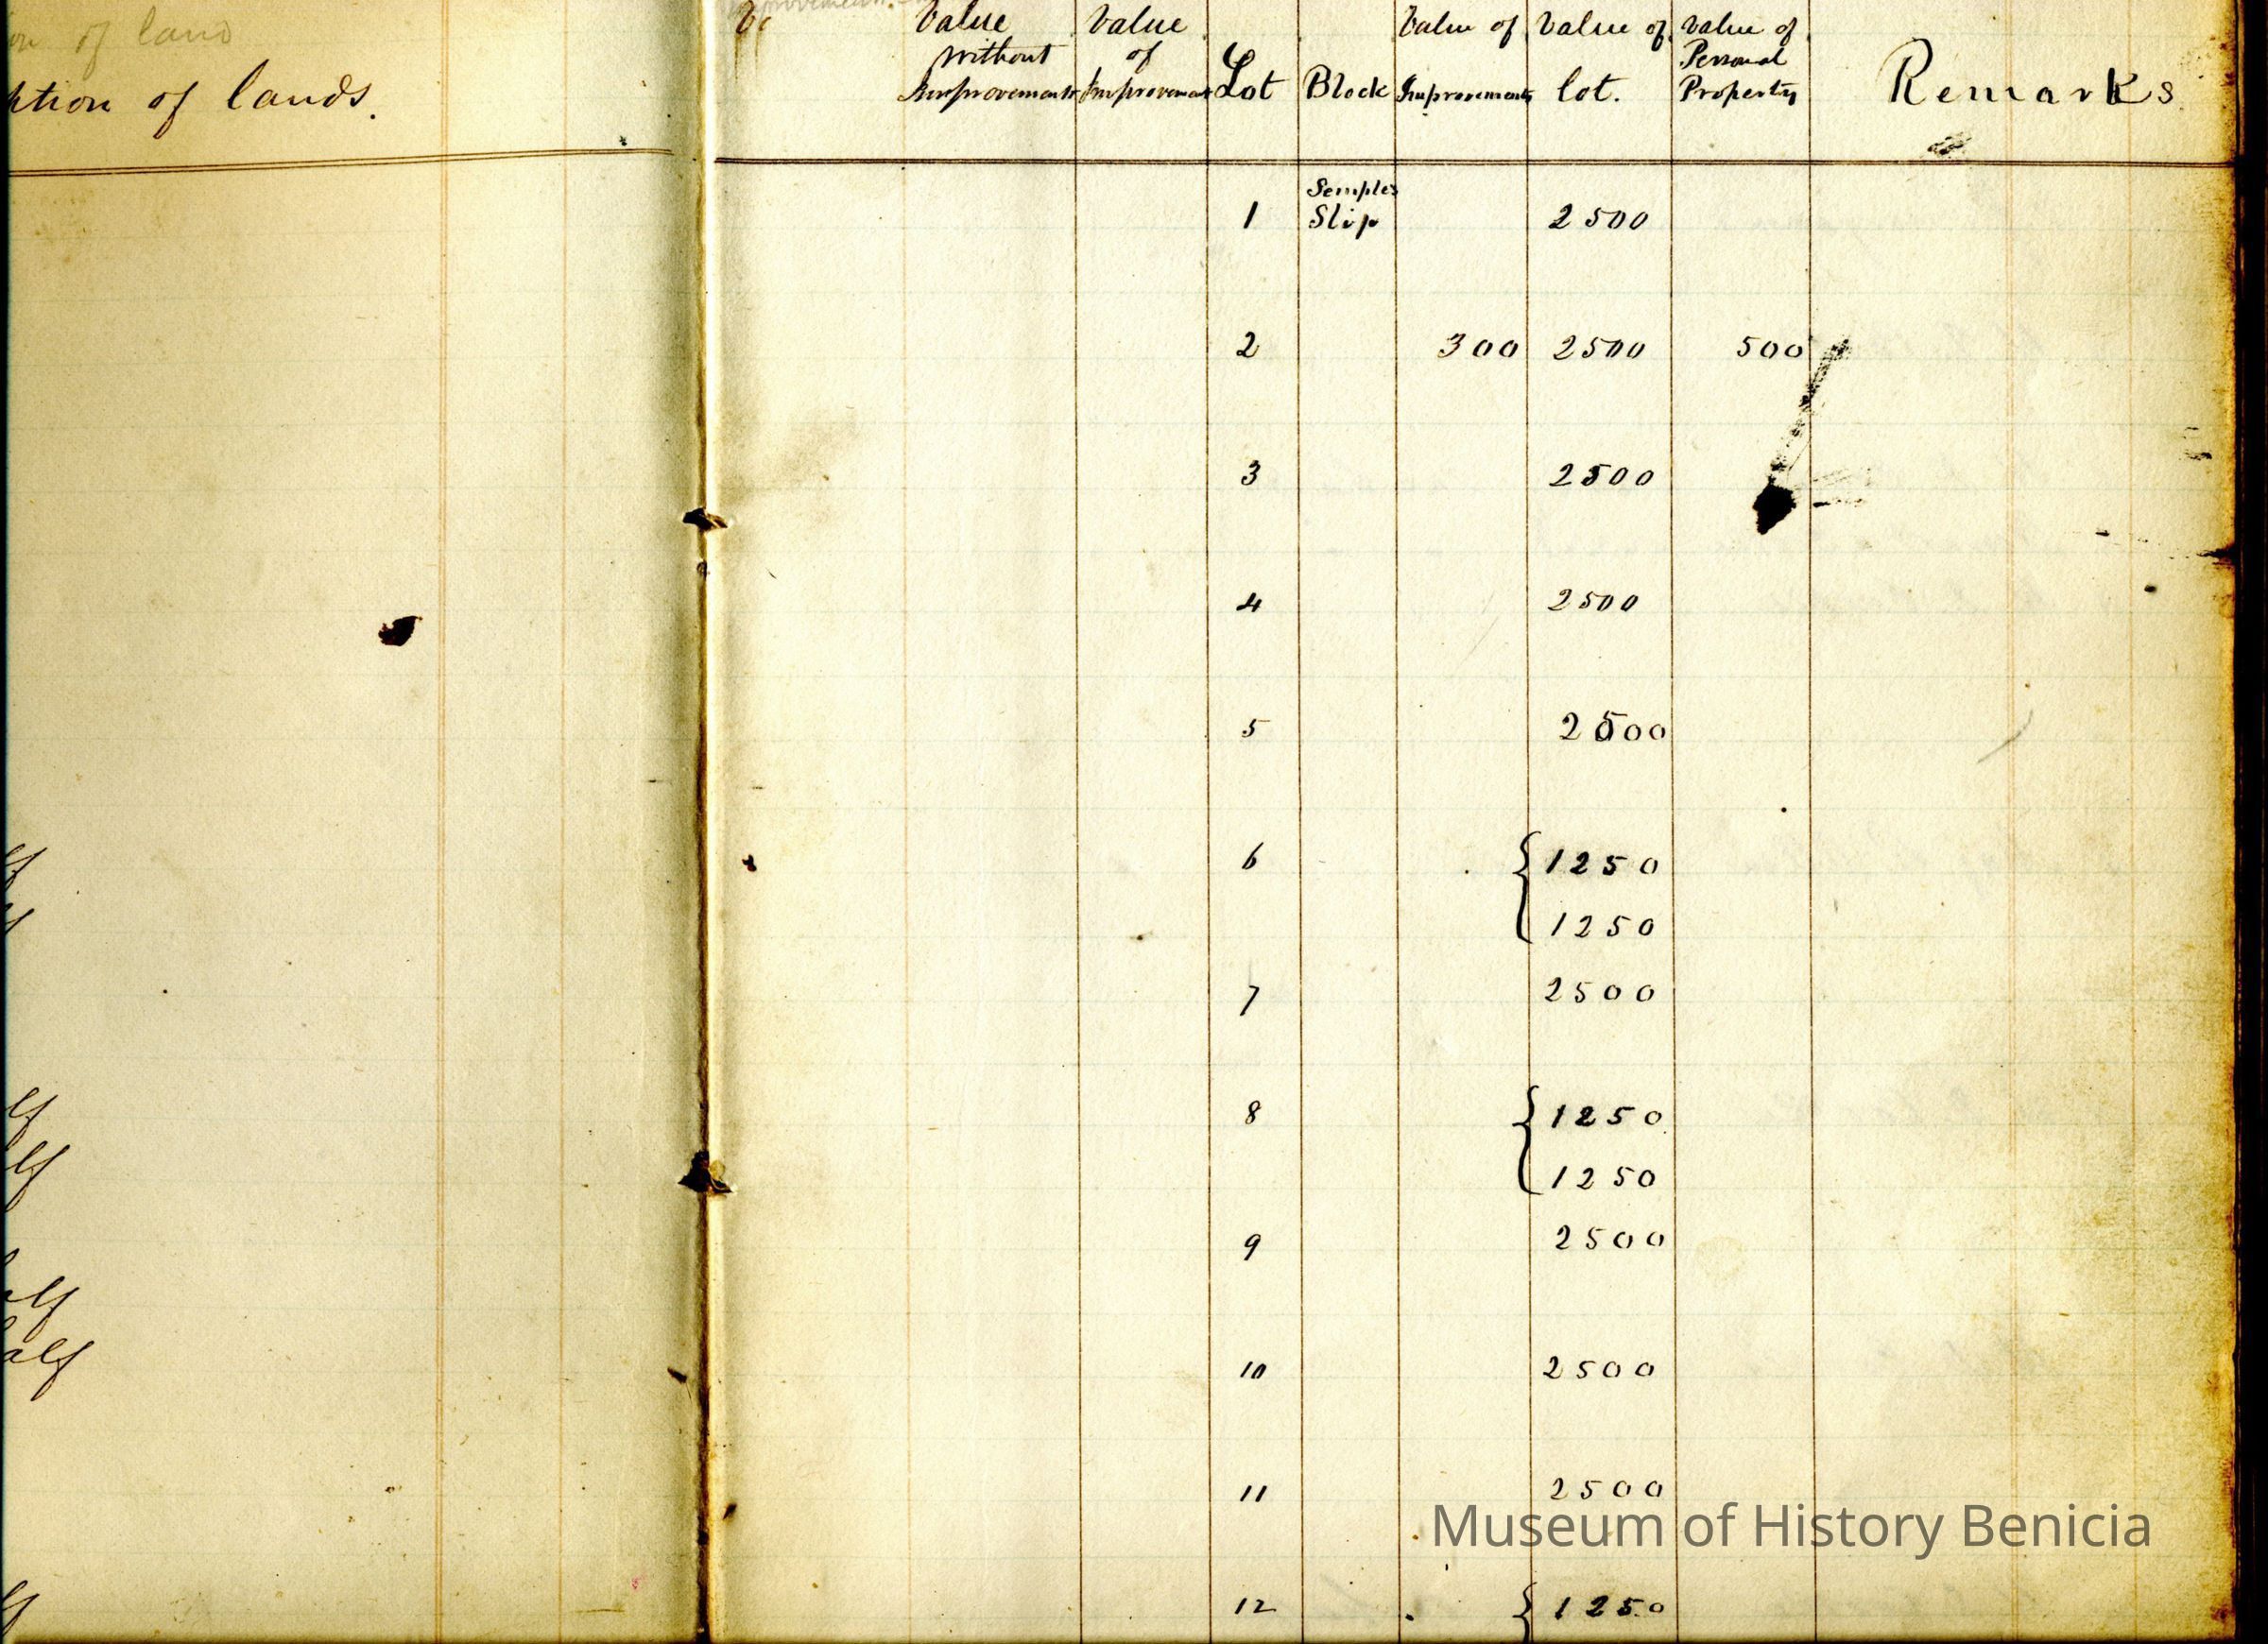 of land
of lands.
Value without Improvements
Value of Improvement
Lot
Block
Value of Improvements
Value of lot.
Value of Personal Property
Remarks
1 Semples Slip 2500
2 300 2500 500
3 2500
4 2500
5 2500
6 { 1250
1250
7 2500
8 { 1250
1250
9 2500
10 2500
11 2500
12 { 1250
alf
Museum of History Benicia